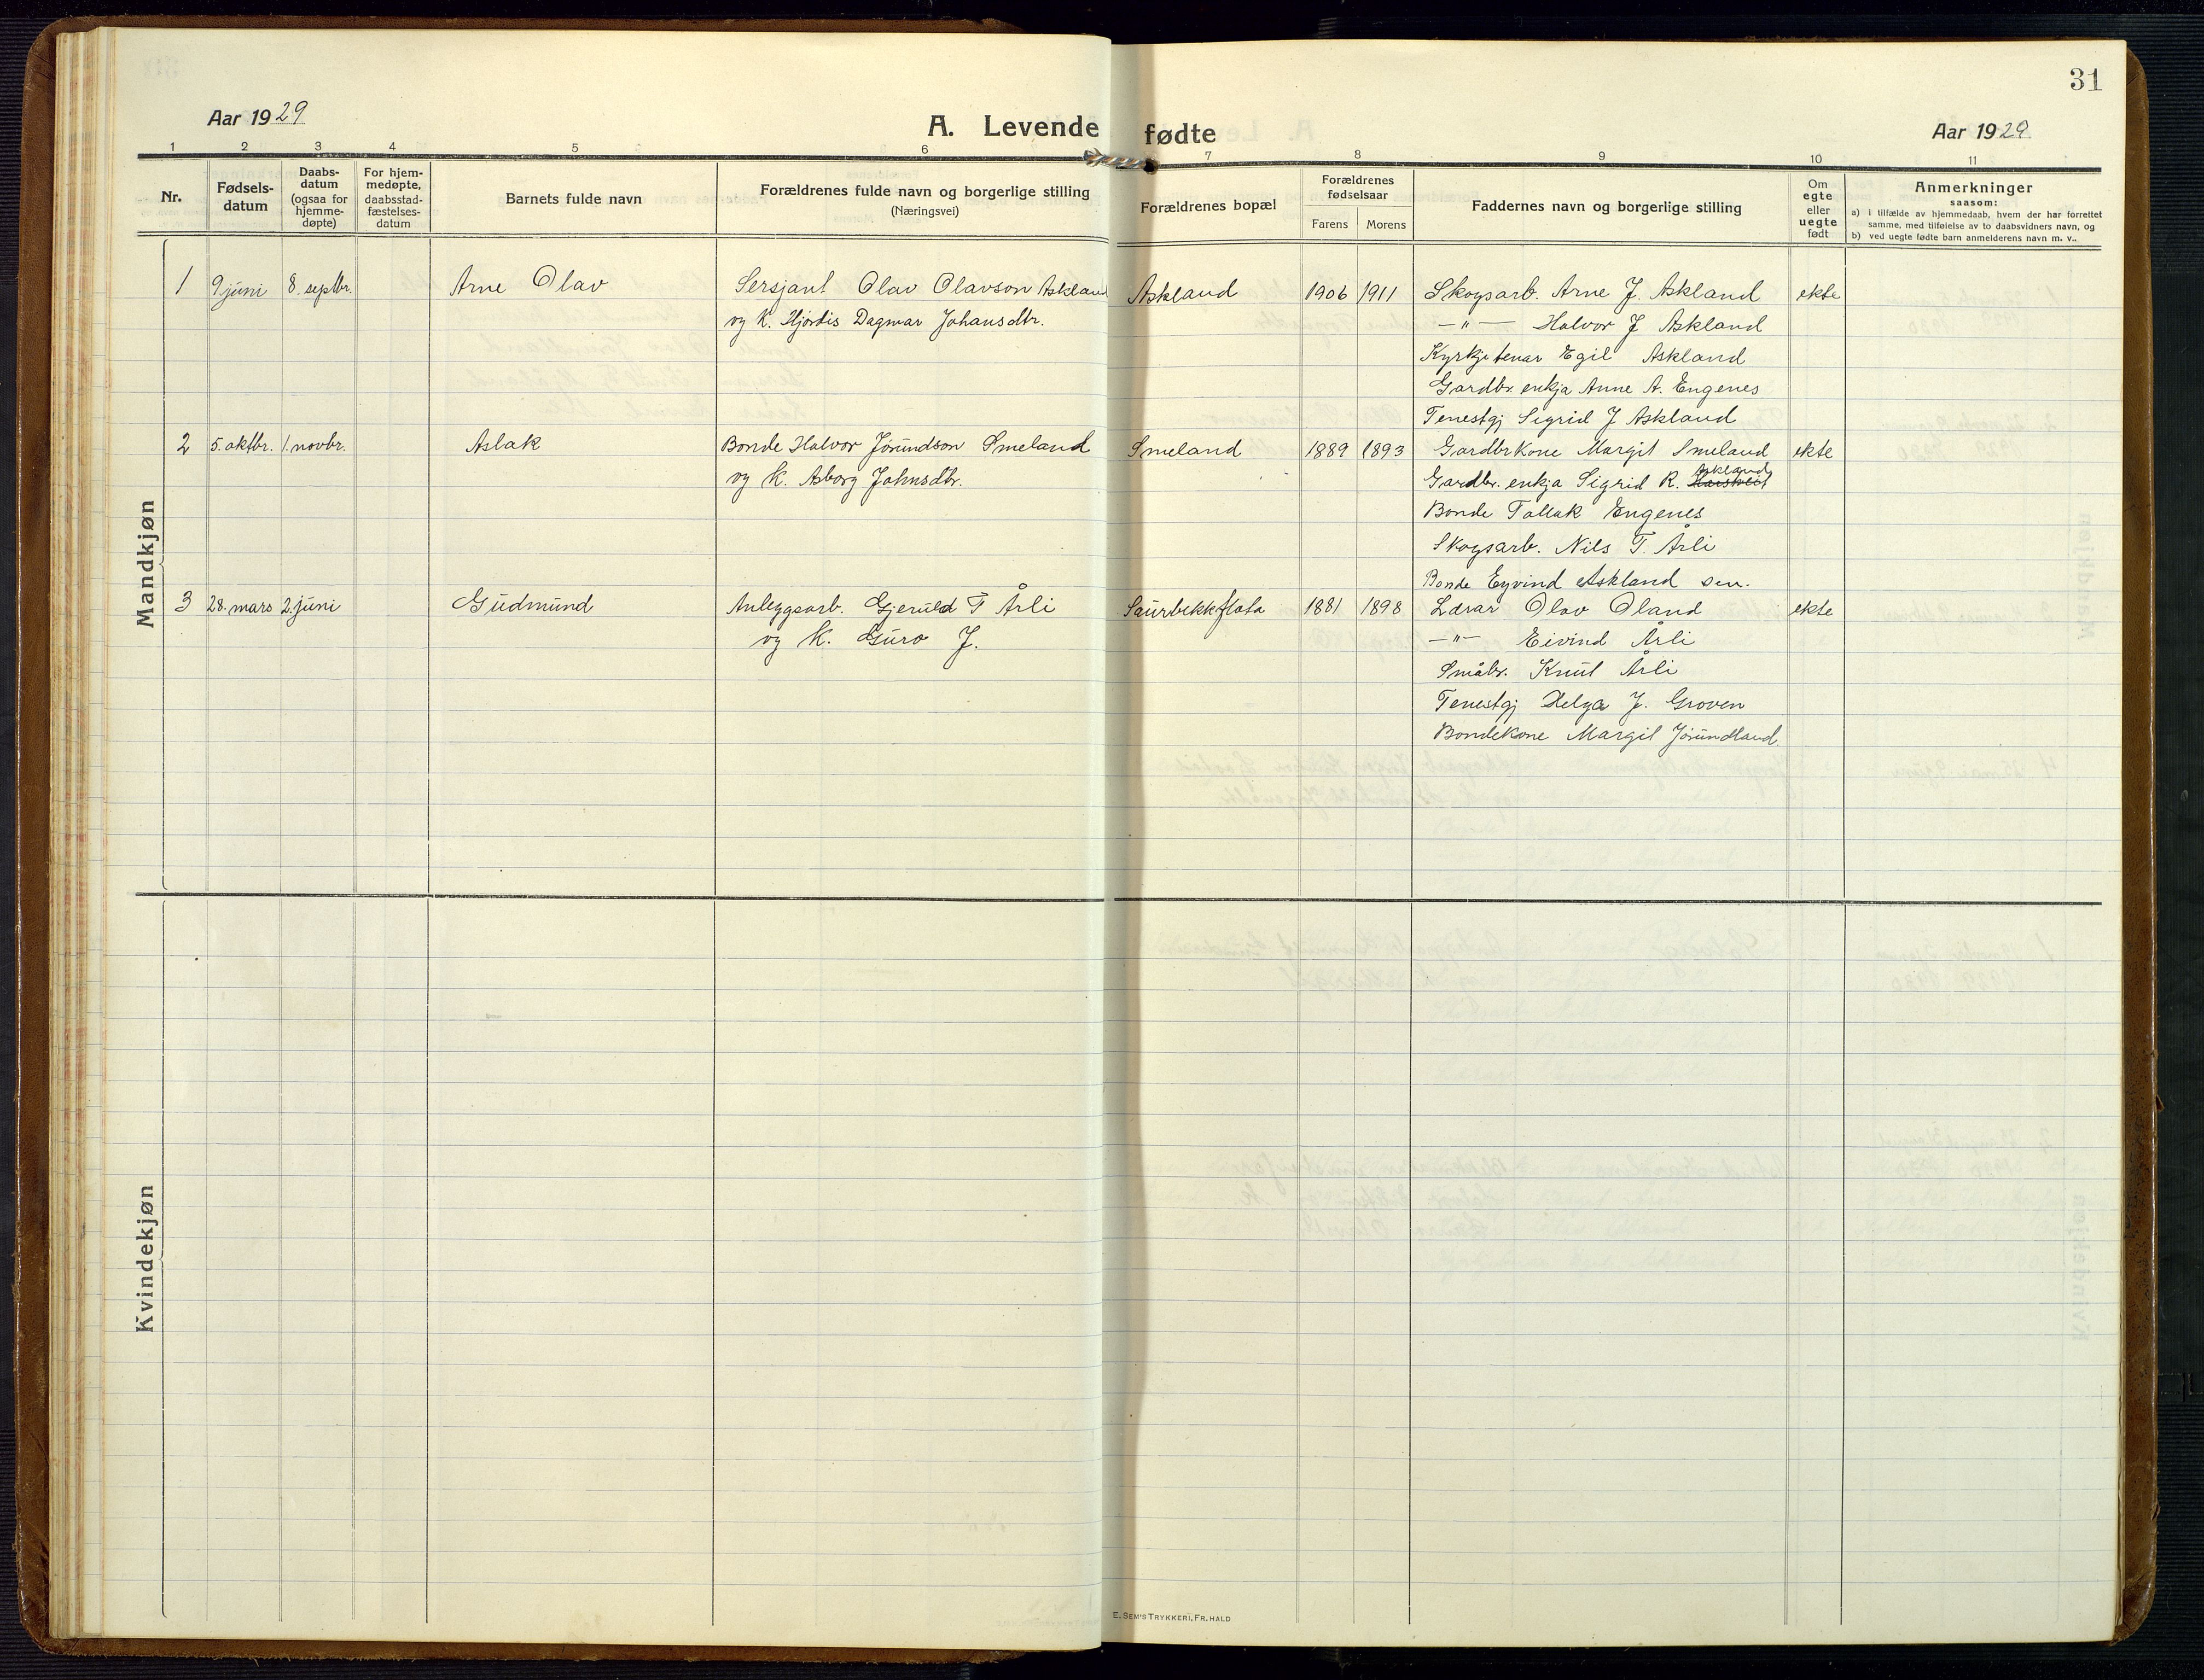 31
Aar 1929
A. Levende fødte
Aar 1929
1 2 3 4 5 6 7 8 9 10 11
Nr.
Fødsels-
datum
Daabs-
datum
(ogsaa for
hjemme-
døpte)
For hjem-
medøpte,
daabsstad-
fæstelses-
datum
Barnets fulde navn
Forældrenes fulde navn og borgerlige stilling
(Næringsvei)
Forældrenes bopæl
Forældrenes
fødselsaar
Farens Morens
Faddernes navn og borgerlige stilling
Om
egte
eller
uegte
født
Anmerkninger
saasom:
a) i tilfælde av hjemmedaab, hvem der har forrettet
samme, med tilføielse av to daabsvidners navn, og
b) ved uegte fødte barn anmelderens navn m. v..
Mandkjøn
1 9 juni 8. septbr. Arne Olav Sersjant Olav Olavson Askland Askland 1906 1911 Skogsarb. Arne J. Askland ekte
og K. Hjørdis Dagmar Johansdtr. —"— Halvor J Askland
Kyrkjetenar Egil Askland
Gardbr. enkja Anne A. Engenes
Tenestgj Sigrid J Askland
2 5. oktbr. 1. novbr. Aslak Bonde Halvor Jørundson Smeland Smeland 1889 1893 Gardbrkone Margit Smeland ekte
og K. Asborg Johnsdtr. Gardbr. enkja Sigrid R. Askland
Bonde Tallak Engenes
Skogsarb. Nils T. Årli
Bonde Eyvind Askland sen.
3 28. mars 2. juni Gudmund Anleggsarb. Gjeruld T Årli Saurbekkflata 1881 1898 Lærar Olav Øland ekte
og K. Guro J. —"— Eivind Årli
Småbr. Knut Årli
Tenestgj Helga J. Groven
Bondekone Margit Jørundland.
Kvindekjøn
E. SEM'S TRYKKERI, FR.HALD